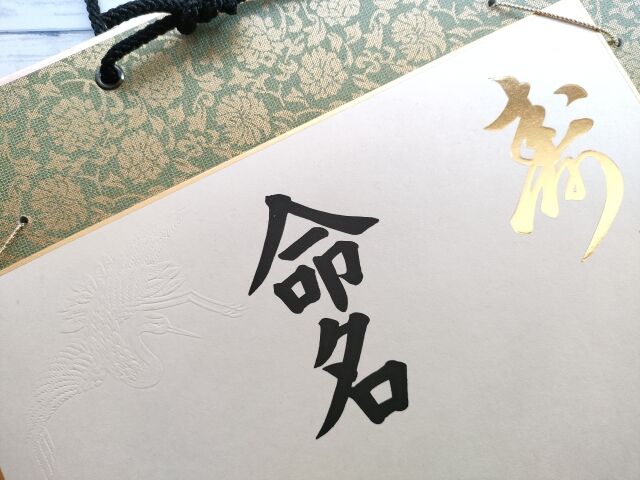 寿
命名